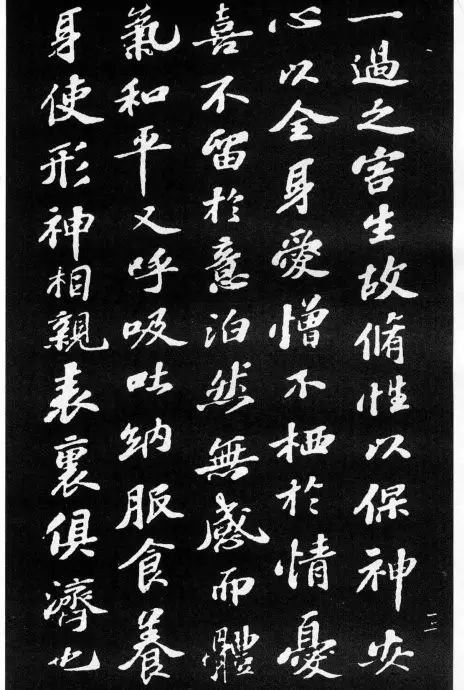 一過之害生故脩性以保神安
心以全身愛憎不栖於情憂
喜不留於意泊然無感而體
氣和平又呼吸吐納服食養
身使形神相親表裏俱濟也
二